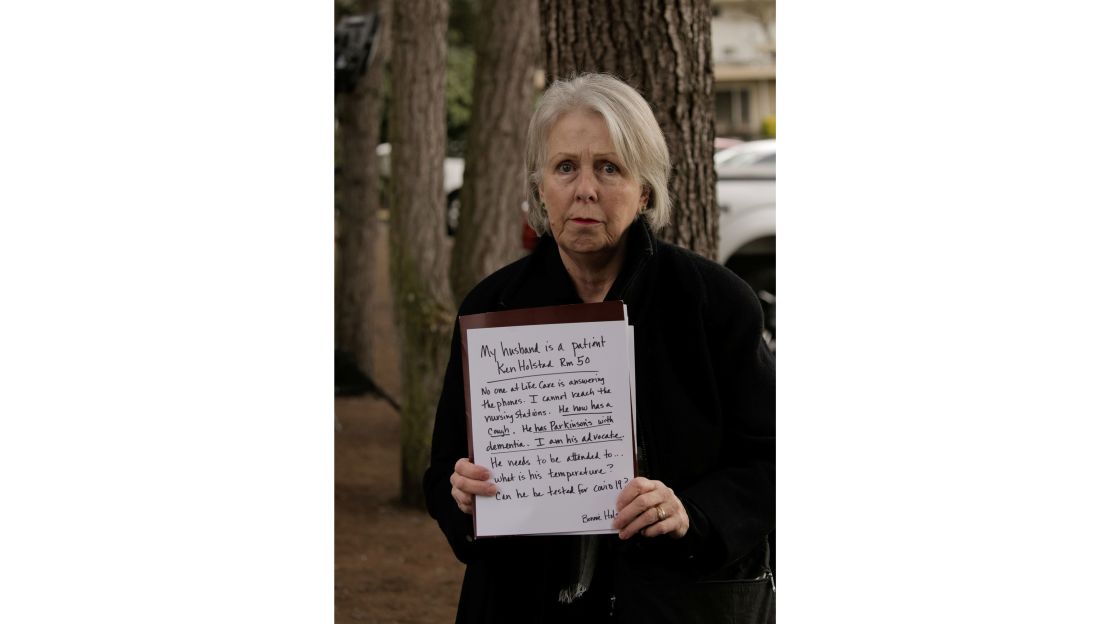 My husband is a patient
Ken Holstad Rm 50
No one at Life Care is answering
the phones. I cannot reach the
nursing stations. He now has a
cough. He has Parkinson's with
dementia. I am his advocate.
He needs to be attended to...
what is his temperature?
Can he be tested for covid 19?
Bonnie Hol